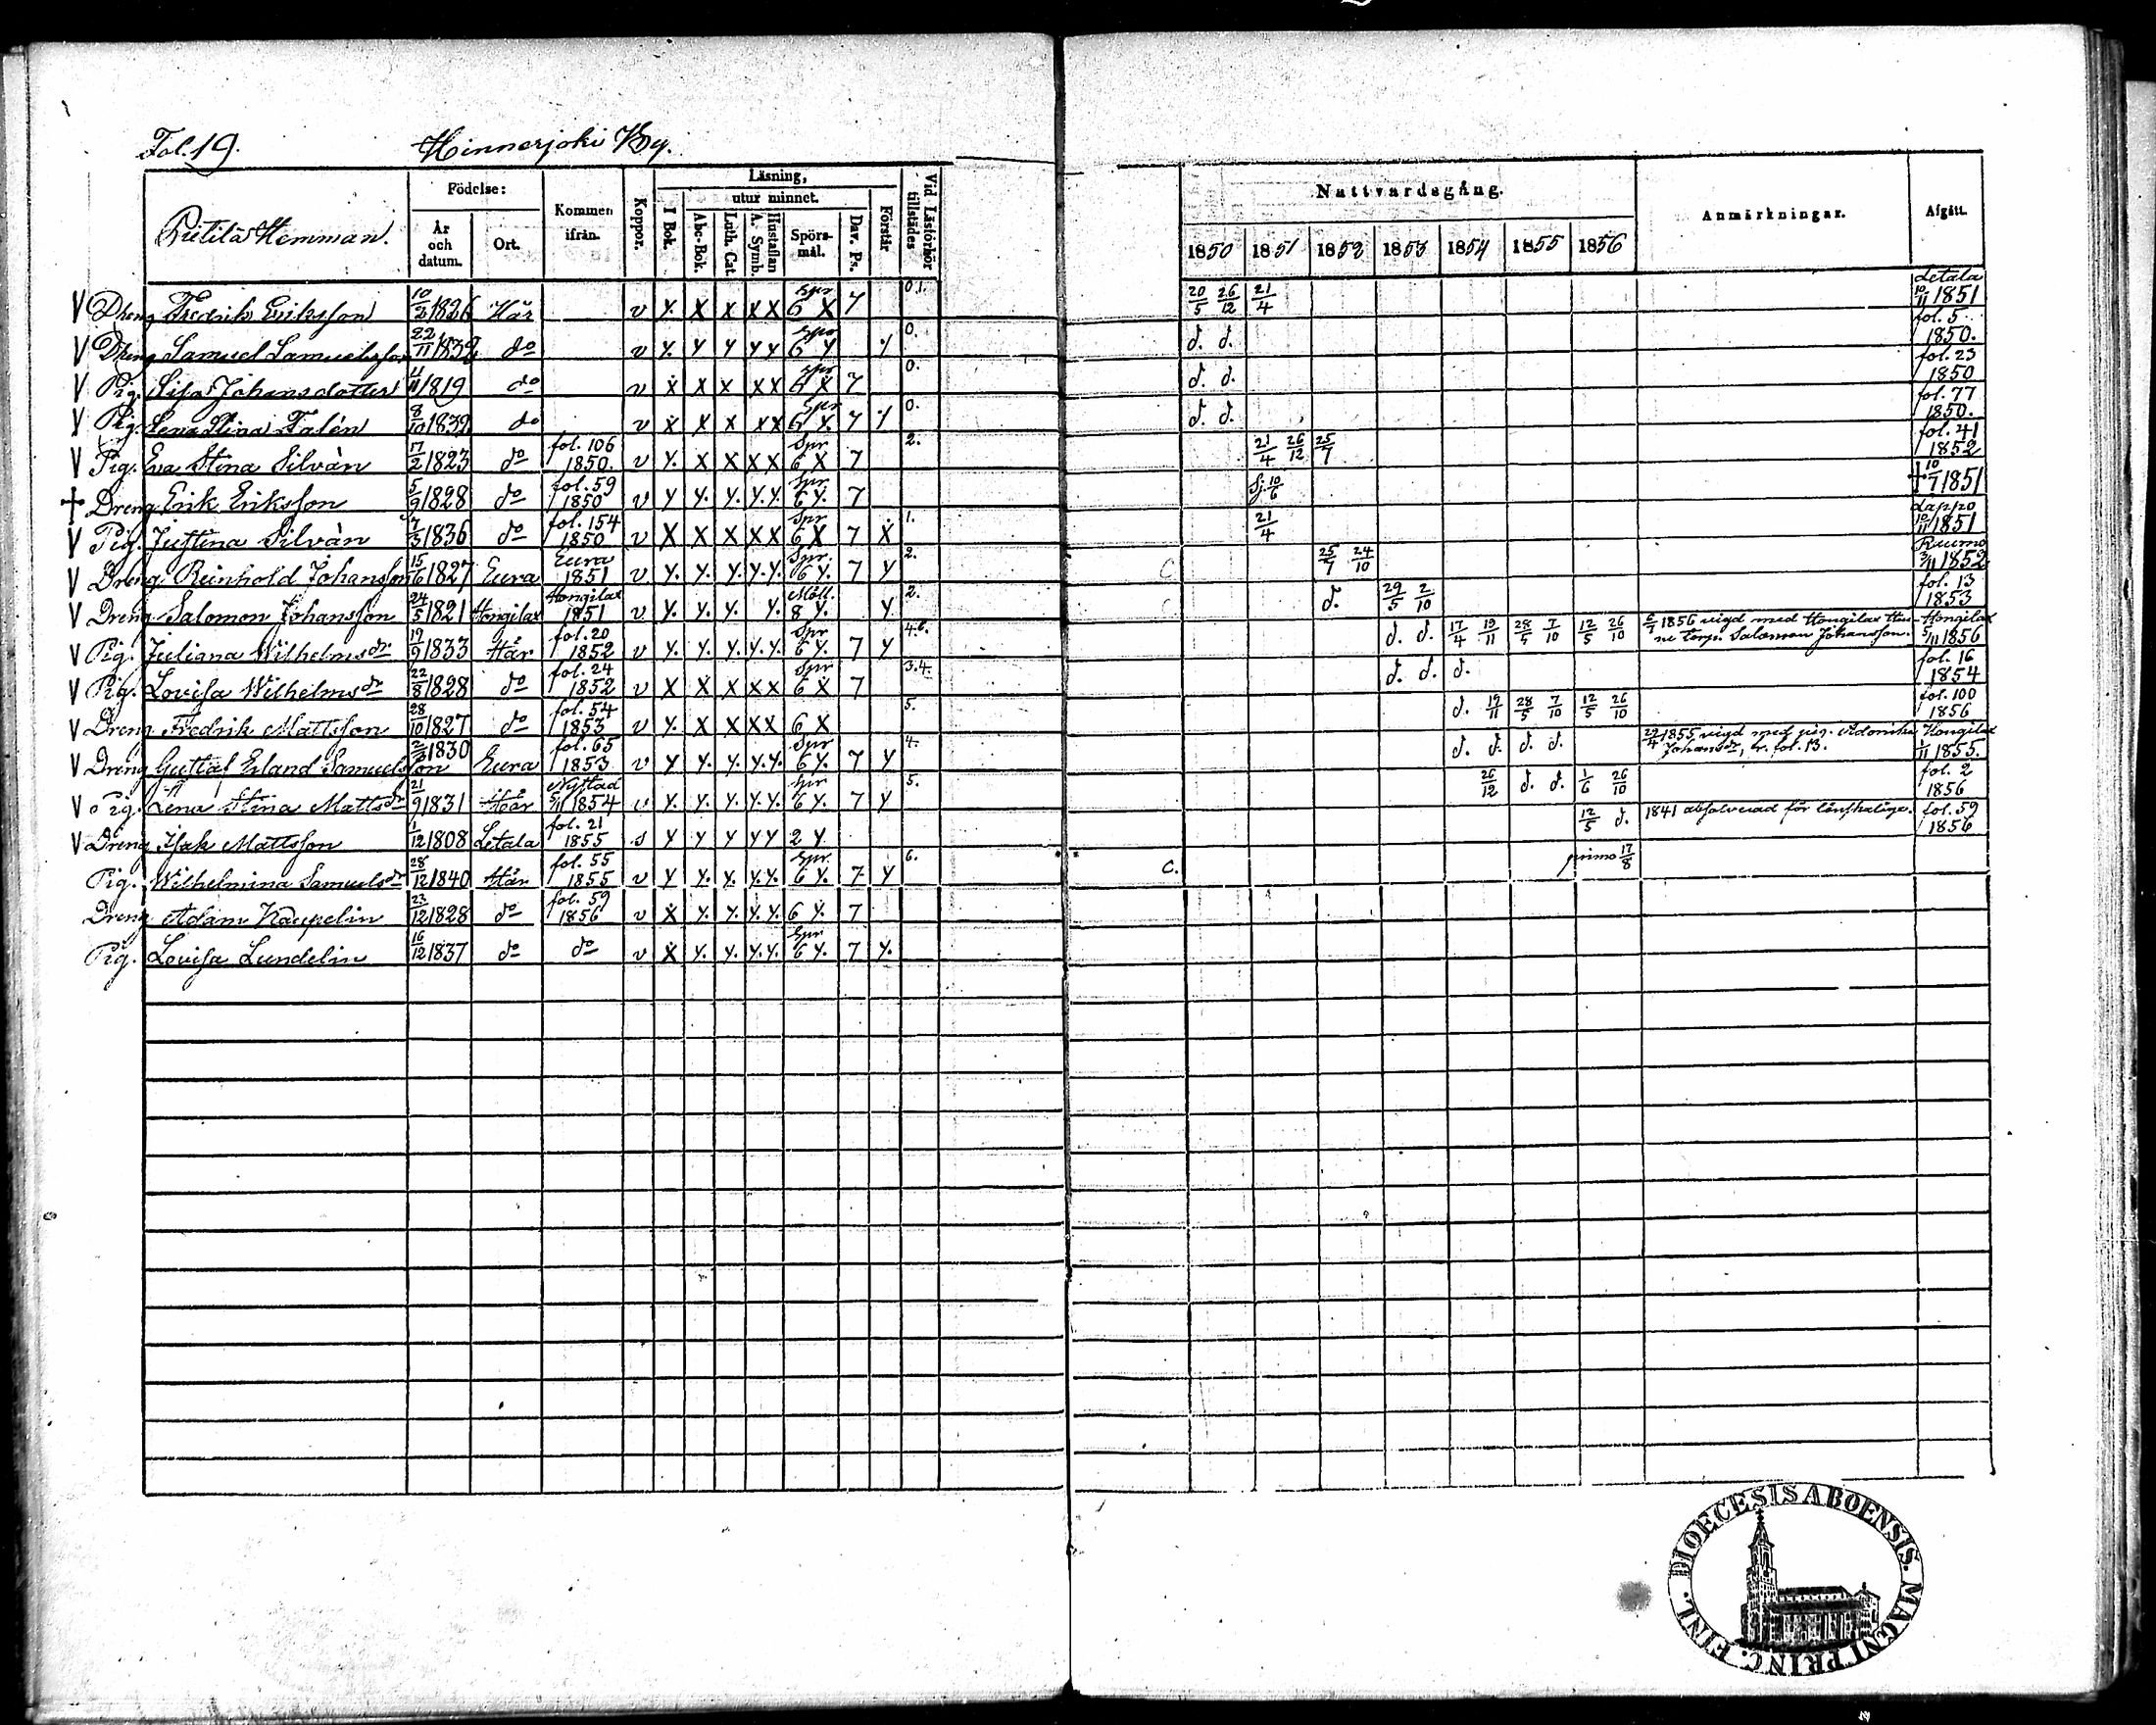 Fol. 19. Hinnerjoki By.
Födelse: Kommen ifrån. Koppor. Läsning, Vid Läsförhör tillstädes
Hemman. År och datum. Ort. I Bok. utur minnet. Abc-Bok. Luth. Cat. Hustaflan A. Symb. Spörsmål. Dav. Ps. Förstår
Nattvardsgång. Anmärkningar. Afgått.
1850 1851 1852 1853 1854 1855 1856
V Dreng Fredrik Eriksson 10/2 1826 Här v Y. X X X X Spr 6 X 7 0.1. 20/5 26/12 21/4 Letala 10/11 1851
V Dreng Samuel Samuelsson 22/11 1832 do v Y. Y Y Y Y Spr 6 Y Y 0. d. d. fol. 5 1850.
V Pig. Lisa Johansdotter 1819 do v X X X X X Spr 6 X 7 0. d. d. fol. 23 1850
V Pig. Lena Stina Falén 8/10 1832 do v X X X X X Spr 6 Y. 7 Y 0. d. d. fol. 77 1850.
V Pig. Eva Stina Silvàn 17/2 1823 do fol. 106 1850. v Y. X X X X Spr 6 X 7 2. 21/4 26/12 25/7 fol. 41 1852
† Dreng Erik Eriksson 5/9 1828 do fol. 59 1850 v Y Y. Y. Y. Y. Spr 6 Y. 7 Sj. 10/6 † 10/7 1851
V Pig. Justina Silvàn 7/3 1836 do fol. 154 1850 v X X X X X Spr 6 X 7 X 1. 21/4 Lappo 10/11 1851
V Dreng Reinhold Johansson 15/6 1827 Eura Eura 1851 v. Y. Y. Y. Y. Y. Spr. 6 Y. 7 Y 2. C. 25/7 24/10 Raumo 3/11 1852
V Dreng Salomon Johansson 24/5 1821 Hongilax Hongilax 1851 v Y. Y. Y. Y. Möll. 8 Y. Y. 2. d. 29/5 2/10 fol. 13 1853
V Pig. Juliana Wilhelmsdr 19/9 1833 Här fol. 20 1852 v Y. Y. Y. Y. Y. Spr 6 Y. 7 Y 4.6. d. d. 17/4 19/11 28/5 7/10 12/5 26/10 1856 vigd med Hongilax Torp. Salomon Johansson. Hongilax 5/11 1856
V Pig. Lovisa Wilhelmsdr 22/8 1828 do fol. 24 1852 v X X X X X Spr 6 X 7 3.4. d. d. d. fol. 16 1854
V Dreng Fredrik Mattsson 28/10 1827 do fol. 54 1853 v Y. X X X X 6 X 5. d. 19/11 28/5 7/10 12/5 26/10 fol. 100 1856
V Dreng Gustaf Erland Samuelsson 2/2 1830 Eura fol. 65 1853 v Y Y. Y. Y. Y. Spr 6 Y. 7 Y 4. d. d. d. d. 29/4 1855 vigd med pig. Johansdr, fr. fol. 13. Hongilax 1/11 1855.
V Pig. Lena Stina Mattsdr 21/9 1831 Här Nystad 1854 v Y. Y. Y. Y. Y. Spr 6 Y. 7 Y 5. 26/12 d. d. 1/6 26/10 fol. 2 1856
V Dreng Isak Mattsson 1/12 1808 Letala fol. 21 1855 s Y Y Y Y Y 2 Y 12/5 d. 1841 absolverad för lönskaläge. fol. 59 1856
Pig. Wilhelmina Samuelsdr 28/12 1840 Här fol. 55 1855 v Y Y. Y. Y. Y. Spr. 6 Y. 7 Y 6. C. primo 17/8
Dreng Adam Kaupelin 23/12 1828 do fol. 59 1856 v X Y. Y. Y. Y. 6 Y. 7
Pig. Lovisa Lundelin 16/12 1837 do do v X Y. Y. Y. Y. Spr 6 Y. 7 Y.
DIOECESIS ABOENSIS. MAGNI PRINC. FINL.